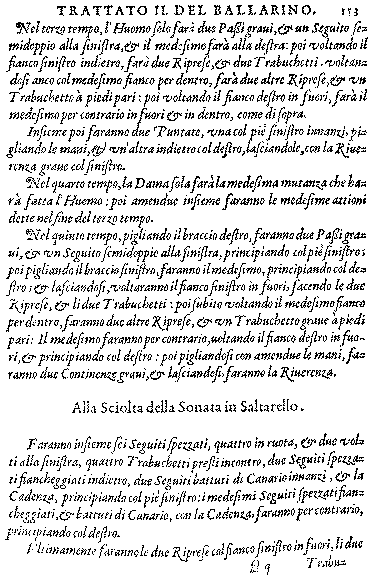 TRATTATO II DEL BALLARINO. 153
Nel terzo tempo, l'Huomo solo farà due Passi graui, & un Seguito se-
midoppio alla sinistra, & il medesimo farà alla destra: poi voltando il
fianco sinistro indietro, farà due Riprese, & due Trabuchetti. voltan-
dosi anco col medesimo fianco per dentro, farà due altre Riprese, & vn
Trabuchetto à piedi pari: poi voltando il fianco destro in fuori, farà il
medesimo per contrario in fuori & in dentro, come di sopra.
Insieme poi faranno due Puntate, vna col piè sinistro innanzi, pi-
gliando le mani, & vn'altra indietro col destro, lasciandole, con la Riue-
renza graue col sinistro.
Nel quarto tempo, la Dama sola farà la medesima mutanza che ha-
rà fatta l'Huomo: poi amendue insieme faranno le medesime attioni
dette nel fine del terzo tempo.
Nel quinto tempo, pigliando il braccio destro, faranno due Passi gra-
ui, & un Seguito semidoppio alla sinistra, principiando col piè sinistro:
poi pigliando il braccio sinistro, faranno il medesimo, principiando col de-
stro: & lasciandosi, voltaranno il fianco sinistro in fuori, facendo le due
Riprese, & li due Trabuchetti: poi subito voltando il medesimo fianco
per dentro, faranno due altre Riprese, & vn Trabuchetto graue à piedi
pari: Il medesimo faranno per contrario, voltando il fianco destro in fuo-
ri, & principiando col destro: poi pigliandosi con amendue le mani, fa-
ranno due Continenze graui, & lasciandosi, faranno la Riuerenza.
Alla Sciolta della Sonata in Saltarello.
Faranno insieme sei Seguiti spezzati, quattro in ruota, & due vol-
ti alla sinistra, quattro Trabuchetti presti incontro, due Seguiti spezza-
ti fiancheggiati indietro, due Seguiti battuti di Canario innanzi, & la
Cadenza, principiando col piè sinistro: i medesimi Seguiti spezzati fian-
cheggiati, & battuti di Canario, con la Cadenza, faranno per contrario,
principiando col destro.
Vltimamente faranno le due Riprese col fianco sinistro in fuori, li due
Qq Trabu-